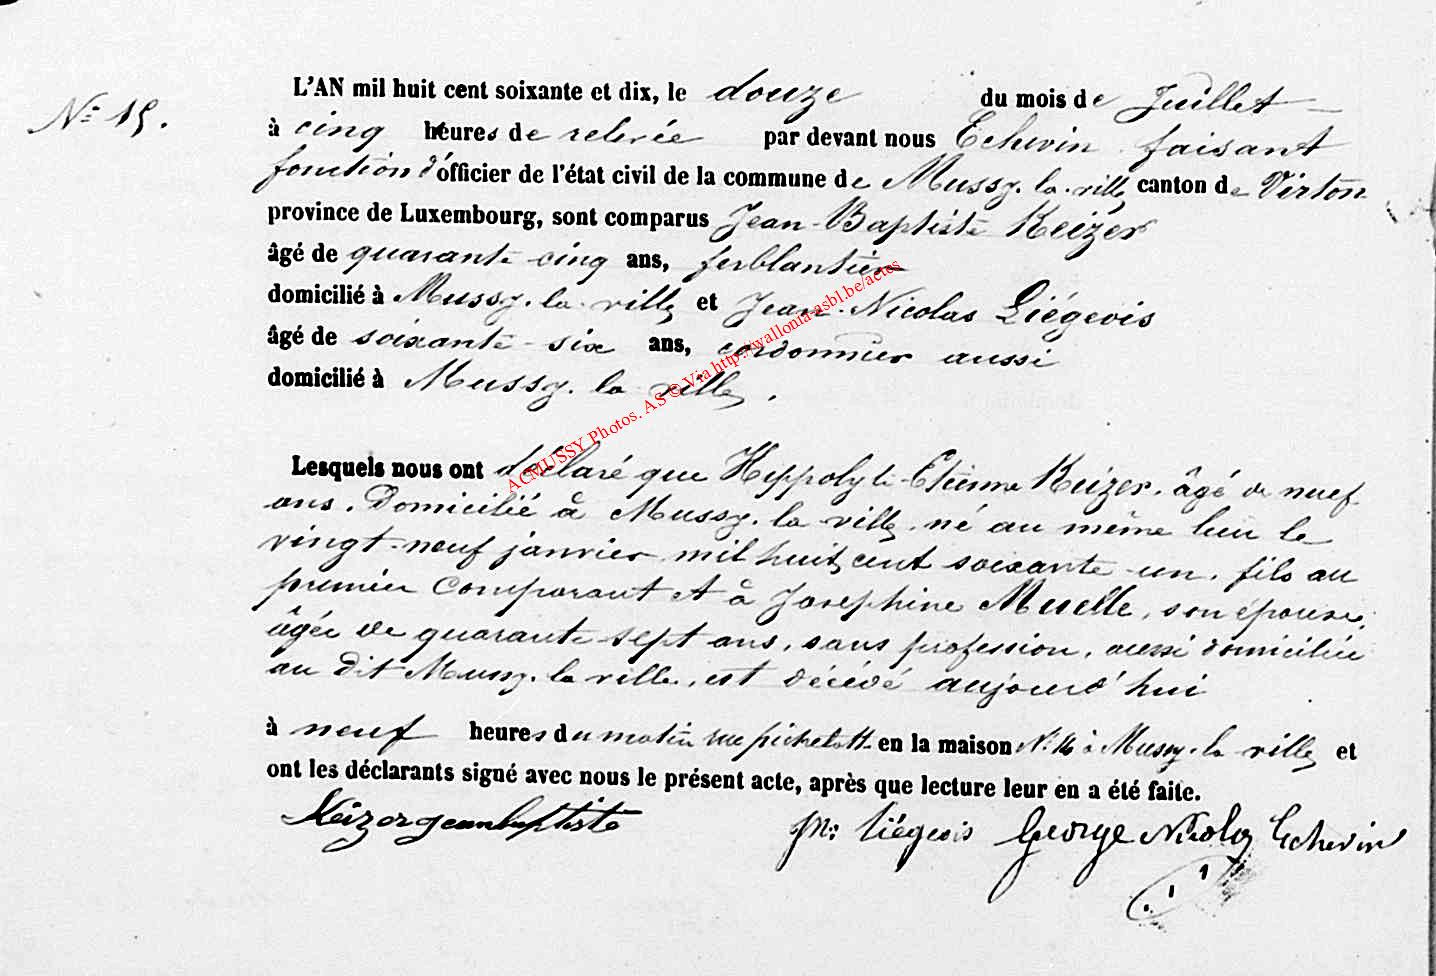 N° 15.
L'AN mil huit cent soixante et dix, le douze du mois de Juillet
à cinq heures de relevée par devant nous Echevin faisant
fonction d'officier de l'état civil de la commune de Mussy-la-ville canton de Virton
province de Luxembourg, sont comparus Jean-Baptiste Keizer
âgé de quarante-cinq ans, ferblantier
domicilié à Mussy-la-ville et Jean-Nicolas Liégeois
âgé de soixante-six ans, cordonnier aussi
domicilié à Mussy-la-ville.
ACMUSSY Photos. AS © Via http://wallonia-asbl.be/actes
Lesquels nous ont déclaré que Hyppolyte-Etienne Keizer, âgé de neuf
ans, Domicilié à Mussy-la-ville, né au même lieu le
vingt-neuf janvier mil huit cent soixante-un, fils au
premier Comparant et à Josephine Muelle, son épouse,
âgée de quarante-sept ans, sans profession, aussi domiciliée
au dit Mussy-la-ville, est décédé aujourd'hui
à neuf heures du matin rue en la maison N° à Mussy-la-ville et
ont les déclarants signé avec nous le présent acte, après que lecture leur en a été faite.
Keizer jean baptiste Liégeois George Nicolas Echevin